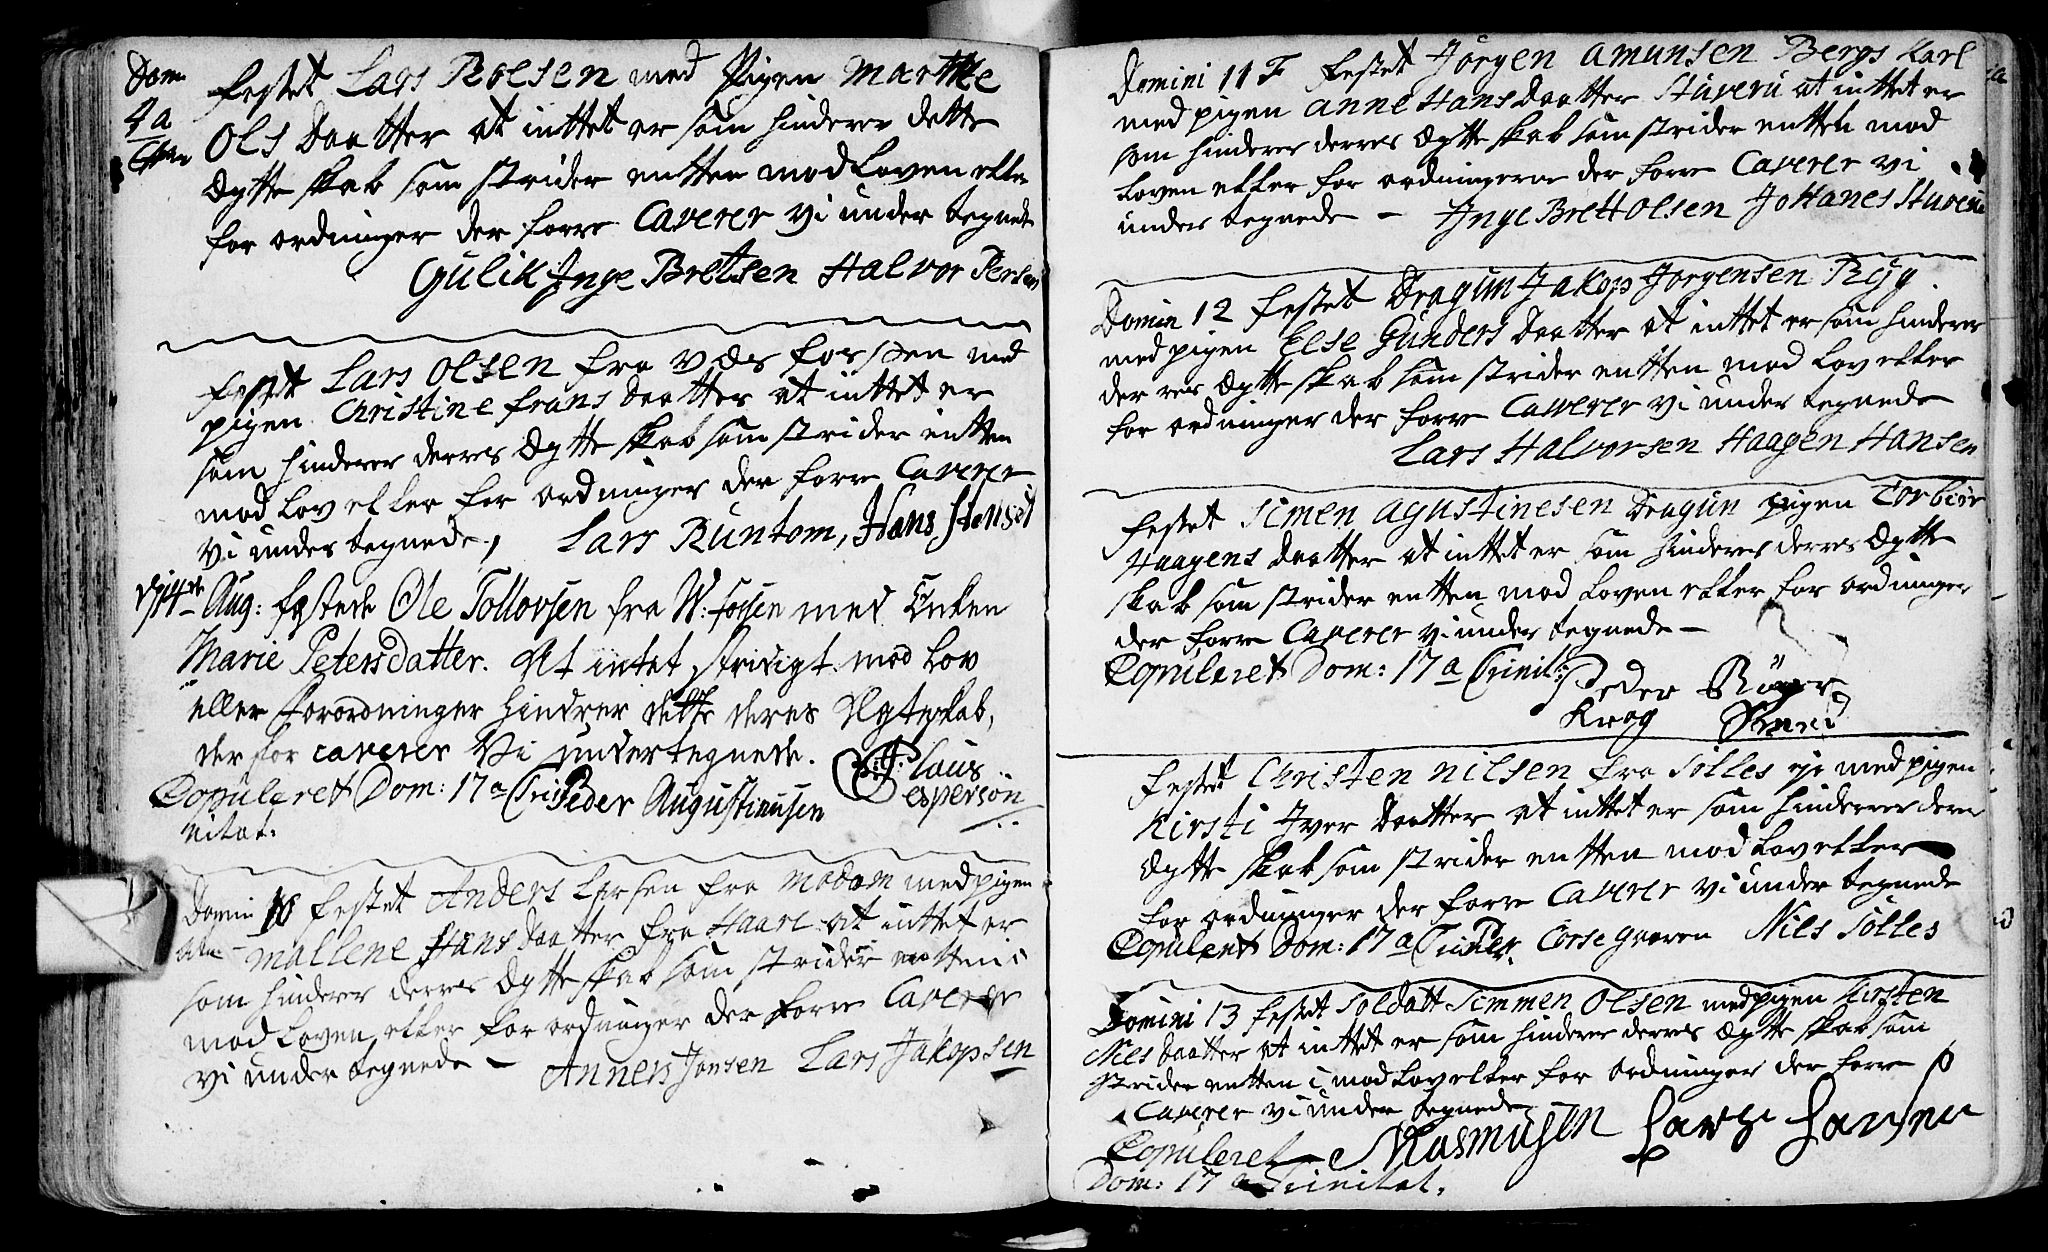 Dom
4 a
festet Lars Roesen med Pigen Marthe
Ols Daatter at inttet er som hinderer dette
Ægtte skab som strider entten mod Loven eller
for ordninger der forre Caverer vi under tegnede
Gulik Inge Bretsen Halvor Persen
festet Lars Olsen fra Væs fossen med
pigen Christine frans Daatter at inttet er
som hinderer derres Ægtte skab som strider entten
mod Lov eller for ordninger der forre Caverer
vi under tegnede, Lars Runtom, Hans
14de Aug: fæstede Ole Tollovsen fra W: fossen med Enken
Marie Petersdatter. At intet stridigt mod Lov
eller Forordninger hindrer dette deres Ægteskab,
der for caverer Vi undertegnede.
Claus
Jesperson
Copuleret Dom: 17 a Tri Peder Augustinusen
nitat.
Domin 10 festet Anders Larsen fra Modom med pigen
Mallene Hans Daatter fra Haare at inttet er
som hinderer derres Ægtte skab som strider entten i
mod Loven eller for ordninger der forre Caverer
vi under tegnede - Anners Jonsen Lars Jakopsen
Domini 11 F festet Jørgen Amunsen Bergs Karl
med pigen Anne Hans Daatter Stuveru at inttet er
som hinderer derres Ægtte skab som strider entten mod
Loven eller for ordningerne der forre Caverer vi
under tegnede - Inge Bret Olsen Johanes Stuveru
Domin 12 festet Dragun Jakop Jorgensen Ryg
med pigen Else Gunders Daatter at inttet er som hinderer
der res Ægtte skab som strider entten mod Lov eller
for ordninger der forre Caverer vi under tegnede
Lars Halvorsen Haagen Hansen
festet Simen Agustinesen Dragun pigen Torbiør
Haagens Daatter at inttet er som hinderer derres Ægtte
skab som strider entten mod Loven eller for ordninger
der forre Caverer vi under tegnede -
Copuleret Dom: 17 a Trinit: Peder Røyer
Krog
festet Christen Nilsen fra Solles eje med pigen
Kirsti Iver Daatter at inttet er som hinderer derres
Ægtte skab som strider entten mod Lov eller
for ordninger der forre Caverer vi under tegnede
Copuleret Dom: 17 a Peder Nils Solles
Domini 13 festet Soldatt Simmen Olsen med pigen Kirsten
Nils Daatter at inttet er som hinderer derres Ægtte skab som
strider entten i mod Lov eller for ordninger der forre
Caverer vi under tegnede
Copuleret Rasmusen Lars Larsen
Dom: 17 a Trinitat.